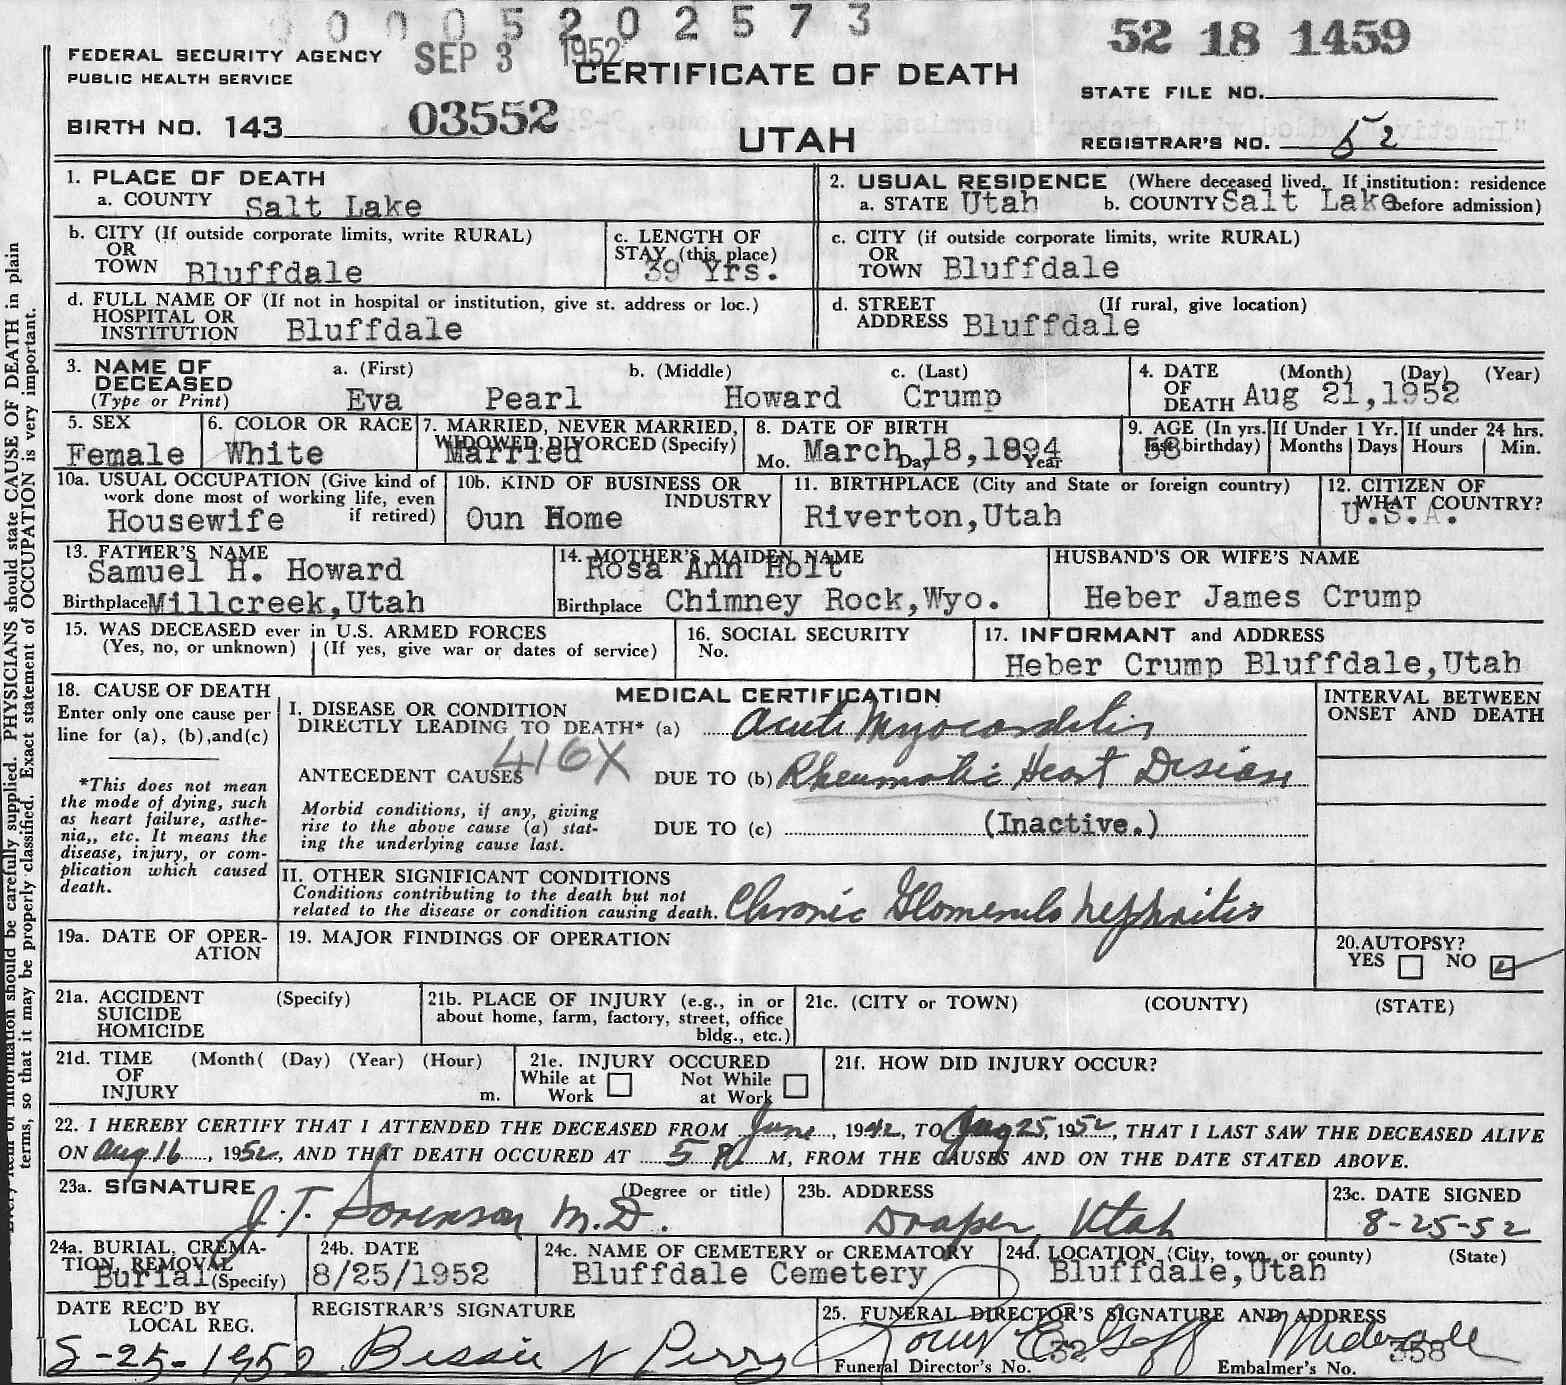 0 0 0 5 2 0 2 5 7 3
FEDERAL SECURITY AGENCY SEP 3 1952 CERTIFICATE OF DEATH 52 18 1459
PUBLIC HEALTH SERVICE STATE FILE NO.
BIRTH NO. 143 03552 UTAH REGISTRAR'S NO. 52
1. PLACE OF DEATH
a. COUNTY Salt Lake
2. USUAL RESIDENCE (Where deceased lived. If institution: residence
a. STATE Utah b. COUNTY Salt Lake before admission)
b. CITY (If outside corporate limits, write RURAL)
OR
TOWN Bluffdale
c. LENGTH OF
STAY (this place)
39 Yrs.
c. CITY (if outside corporate limits, write RURAL)
OR
TOWN Bluffdale
d. FULL NAME OF (If not in hospital or institution, give st. address or loc.)
HOSPITAL OR
INSTITUTION Bluffdale
d. STREET (If rural, give location)
ADDRESS Bluffdale
3. NAME OF a. (First) b. (Middle) c. (Last)
DECEASED
(Type or Print) Eva Pearl Howard Crump
4. DATE (Month) (Day) (Year)
OF
DEATH Aug 21,1952
5. SEX
Female
6. COLOR OR RACE
White
7. MARRIED, NEVER MARRIED,
WIDOWED, DIVORCED (Specify)
Married
8. DATE OF BIRTH
Mo. March Day 18,1894 Year
9. AGE (In yrs.
last birthday)
58
If Under 1 Yr.
Months Days
If under 24 hrs.
Hours Min.
10a. USUAL OCCUPATION (Give kind of
work done most of working life, even
if retired)
Housewife
10b. KIND OF BUSINESS OR
INDUSTRY
Oun Home
11. BIRTHPLACE (City and State or foreign country)
Riverton,Utah
12. CITIZEN OF
WHAT COUNTRY?
U.S.A.
13. FATHER'S NAME
Samuel H. Howard
Birthplace Millcreek,Utah
14. MOTHER'S MAIDEN NAME
Rosa Ann Holt
Birthplace Chimney Rock,Wyo.
HUSBAND'S OR WIFE'S NAME
Heber James Crump
15. WAS DECEASED ever in U.S. ARMED FORCES
(Yes, no, or unknown) (If yes, give war or dates of service)
16. SOCIAL SECURITY
No.
17. INFORMANT and ADDRESS
Heber Crump Bluffdale,Utah
18. CAUSE OF DEATH
Enter only one cause per
line for (a), (b),and(c)
*This does not mean
the mode of dying, such
as heart failure, asthe-
nia,, etc. It means the
disease, injury, or com-
plication which caused
death.
MEDICAL CERTIFICATION
I. DISEASE OR CONDITION
DIRECTLY LEADING TO DEATH* (a) Acute Myocarditis
416X
ANTECEDENT CAUSES DUE TO (b) Rheumatic Heart Disease
Morbid conditions, if any, giving
rise to the above cause (a) stat-
ing the underlying cause last.
DUE TO (c) (Inactive.)
II. OTHER SIGNIFICANT CONDITIONS
Conditions contributing to the death but not
related to the disease or condition causing death. Chronic Glomerulo nephritis
INTERVAL BETWEEN
ONSET AND DEATH
19a. DATE OF OPER-
ATION
19. MAJOR FINDINGS OF OPERATION
20. AUTOPSY?
YES NO
21a. ACCIDENT (Specify)
SUICIDE
HOMICIDE
21b. PLACE OF INJURY (e.g., in or
about home, farm, factory, street, office
bldg., etc.)
21c. (CITY or TOWN) (COUNTY) (STATE)
21d. TIME (Month( (Day) (Year) (Hour)
OF
INJURY m.
21e. INJURY OCCURED
While at Not While
Work at Work
21f. HOW DID INJURY OCCUR?
22. I HEREBY CERTIFY THAT I ATTENDED THE DECEASED FROM June, 1942, TO Aug 25, 1952, THAT I LAST SAW THE DECEASED ALIVE
ON Aug 16, 1952, AND THAT DEATH OCCURED AT 5 P. M, FROM THE CAUSES AND ON THE DATE STATED ABOVE.
23a. SIGNATURE (Degree or title)
J.T. Sorenson M.D.
23b. ADDRESS
Draper, Utah
23c. DATE SIGNED
8-25-52
24a. BURIAL, CREMA-
TION, REMOVAL
Burial (Specify)
24b. DATE
8/25/1952
24c. NAME OF CEMETERY or CREMATORY
Bluffdale Cemetery
24d. LOCATION (City, town, or county) (State)
Bluffdale,Utah
DATE REC'D BY
LOCAL REG.
8-25-1952
REGISTRAR'S SIGNATURE
Bessie N Perry
25. FUNERAL DIRECTOR'S SIGNATURE AND ADDRESS
Goff Midvale
Funeral Director's No. 32 Embalmer's No. 358
information should be carefully supplied. PHYSICIANS should state CAUSE OF DEATH in plain
terms, so that it may be properly classified. Exact statement of OCCUPATION is very important.